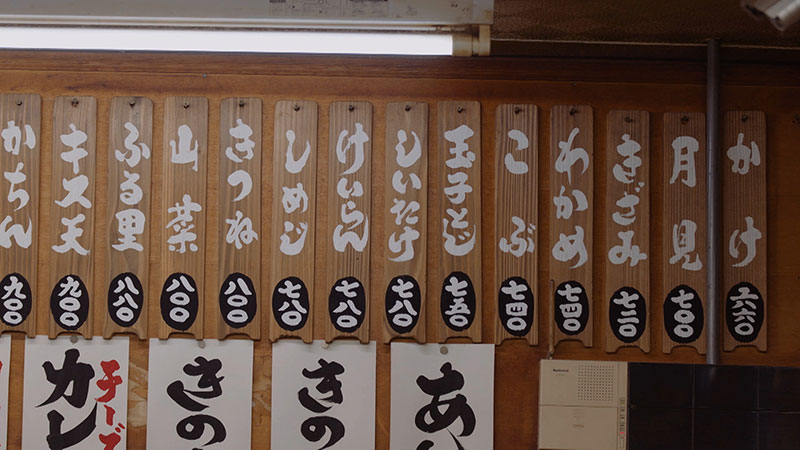 かけ
六六〇
月見
七〇〇
きざみ
七二〇
わかめ
七四〇
こぶ
七四〇
玉子とじ
七五〇
しいたけ
七八〇
けいらん
七八〇
しめじ
七八〇
きつね
八〇〇
山菜
八〇〇
ふる里
八八〇
キス天
九〇〇
かちん
九〇〇
あ
きの
きの
チーズ
カレ